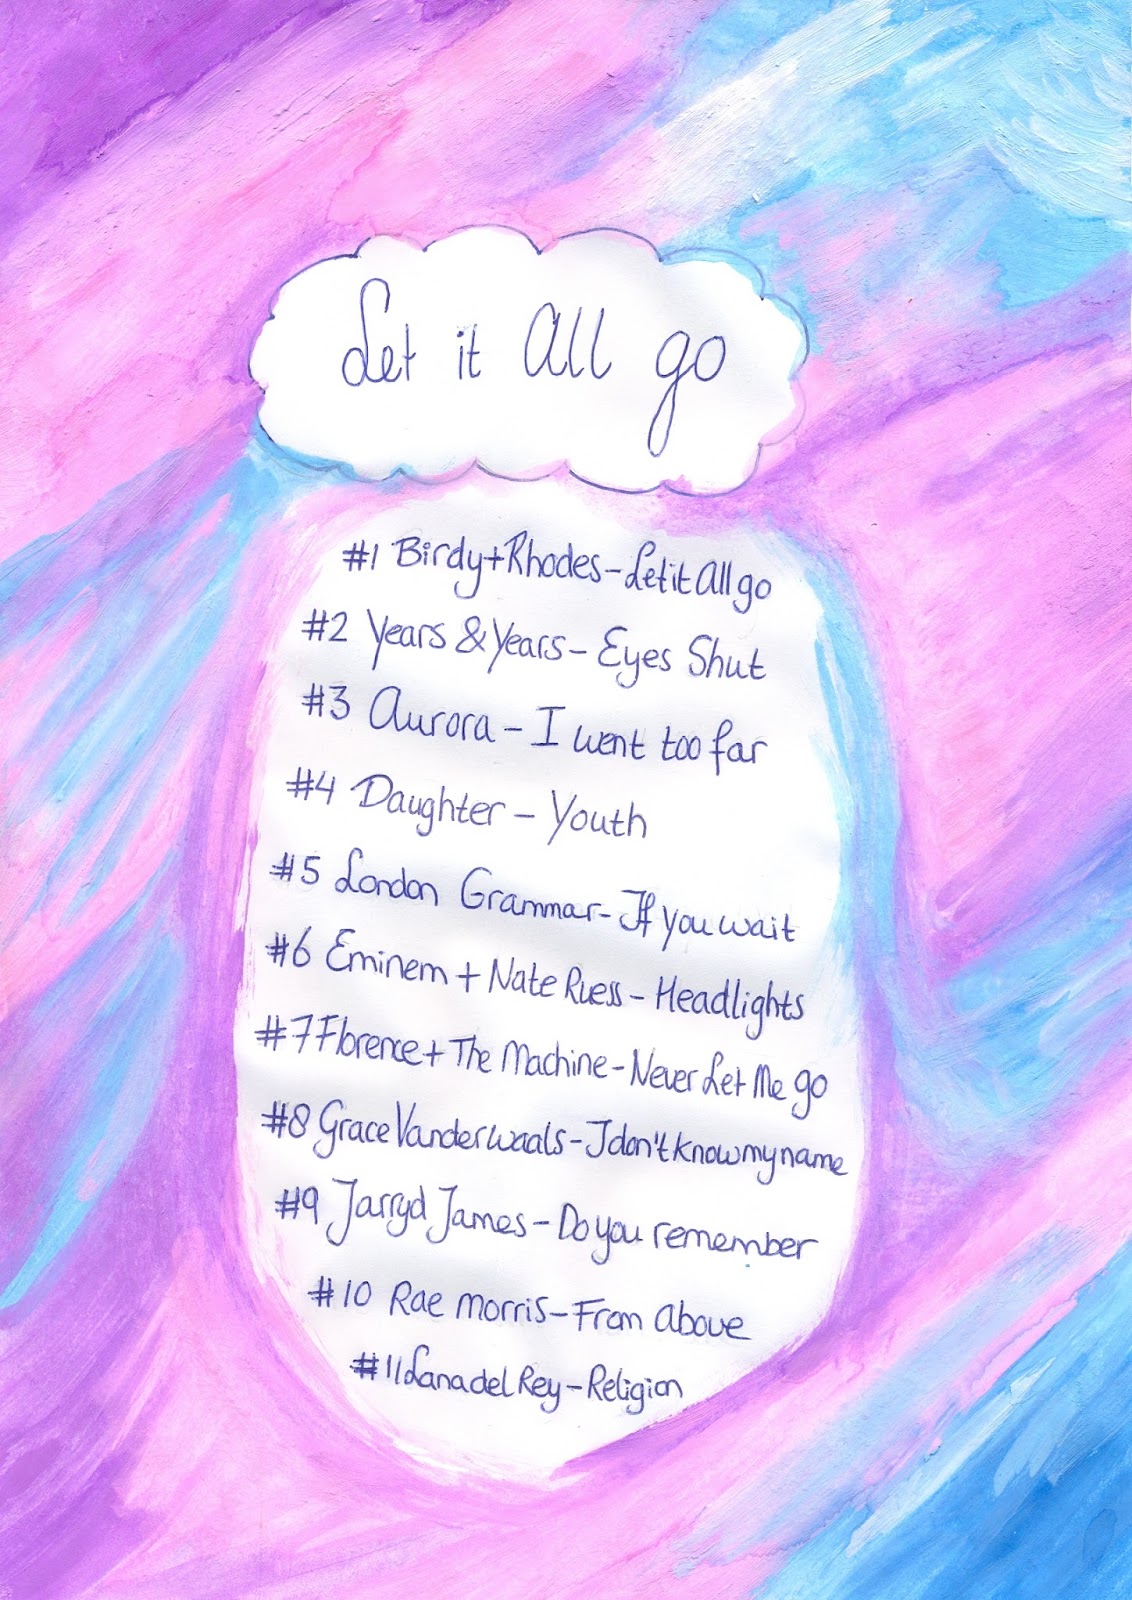 Let it All go
#1 Birdy+Rhodes-Let it All go
#2 Years & Years - Eyes Shut
#3 Aurora - I went too far
#4 Daughter - Youth
#5 London Grammar - If you wait
#6 Eminem + Nate Ruess - Headlights
#7 Florence + The Machine - Never Let Me go
#8 Grace Vanderwaals - I don't know my name
#9 Jarryd James - Do you remember
#10 Rae Morris - From Above
#11 Lana del Rey - Religion